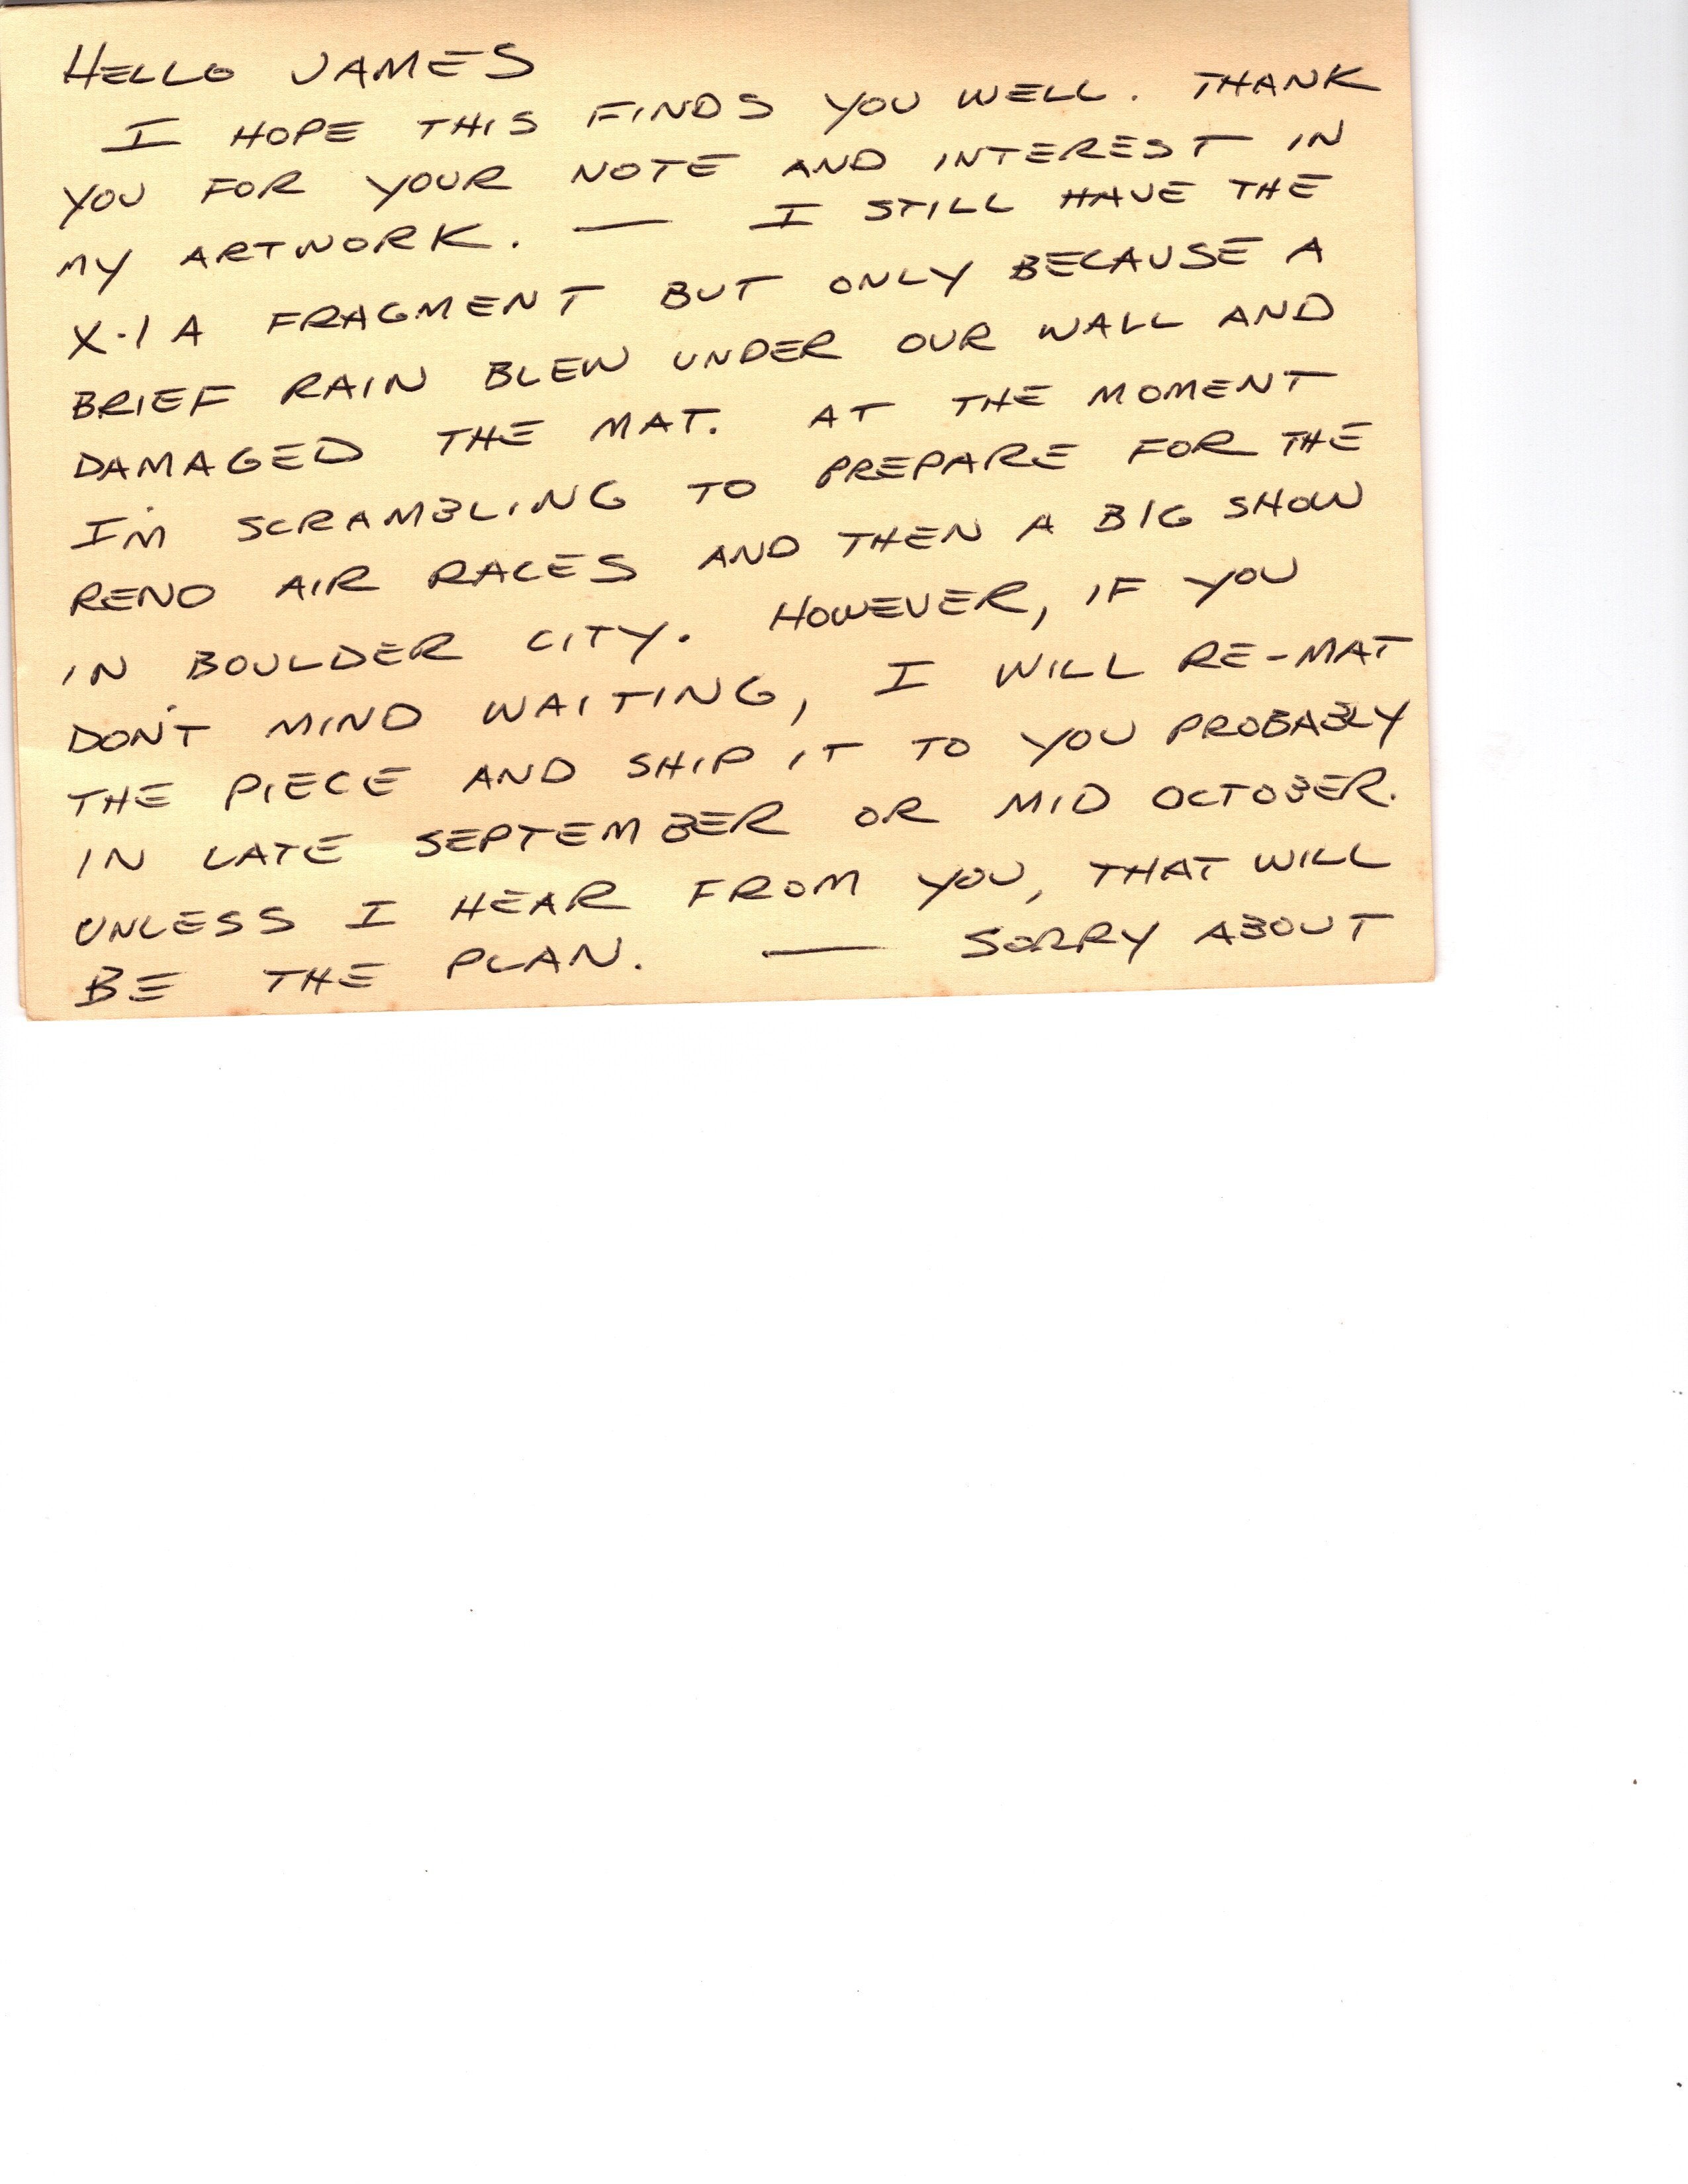 HELLO JAMES
I HOPE THIS FINDS YOU WELL. THANK
YOU FOR YOUR NOTE AND INTEREST IN
MY ARTWORK. — I STILL HAVE THE
X-1A FRAGMENT BUT ONLY BECAUSE A
BRIEF RAIN BLEW UNDER OUR WALL AND
DAMAGED THE MAT. AT THE MOMENT
I'M SCRAMBLING TO PREPARE FOR THE
RENO AIR RACES AND THEN A BIG SHOW
IN BOULDER CITY. HOWEVER, IF YOU
DON'T MIND WAITING, I WILL RE-MAT
THE PIECE AND SHIP IT TO YOU PROBABLY
IN LATE SEPTEMBER OR MID OCTOBER.
UNLESS I HEAR FROM YOU, THAT WILL
BE THE PLAN. — SORRY ABOUT